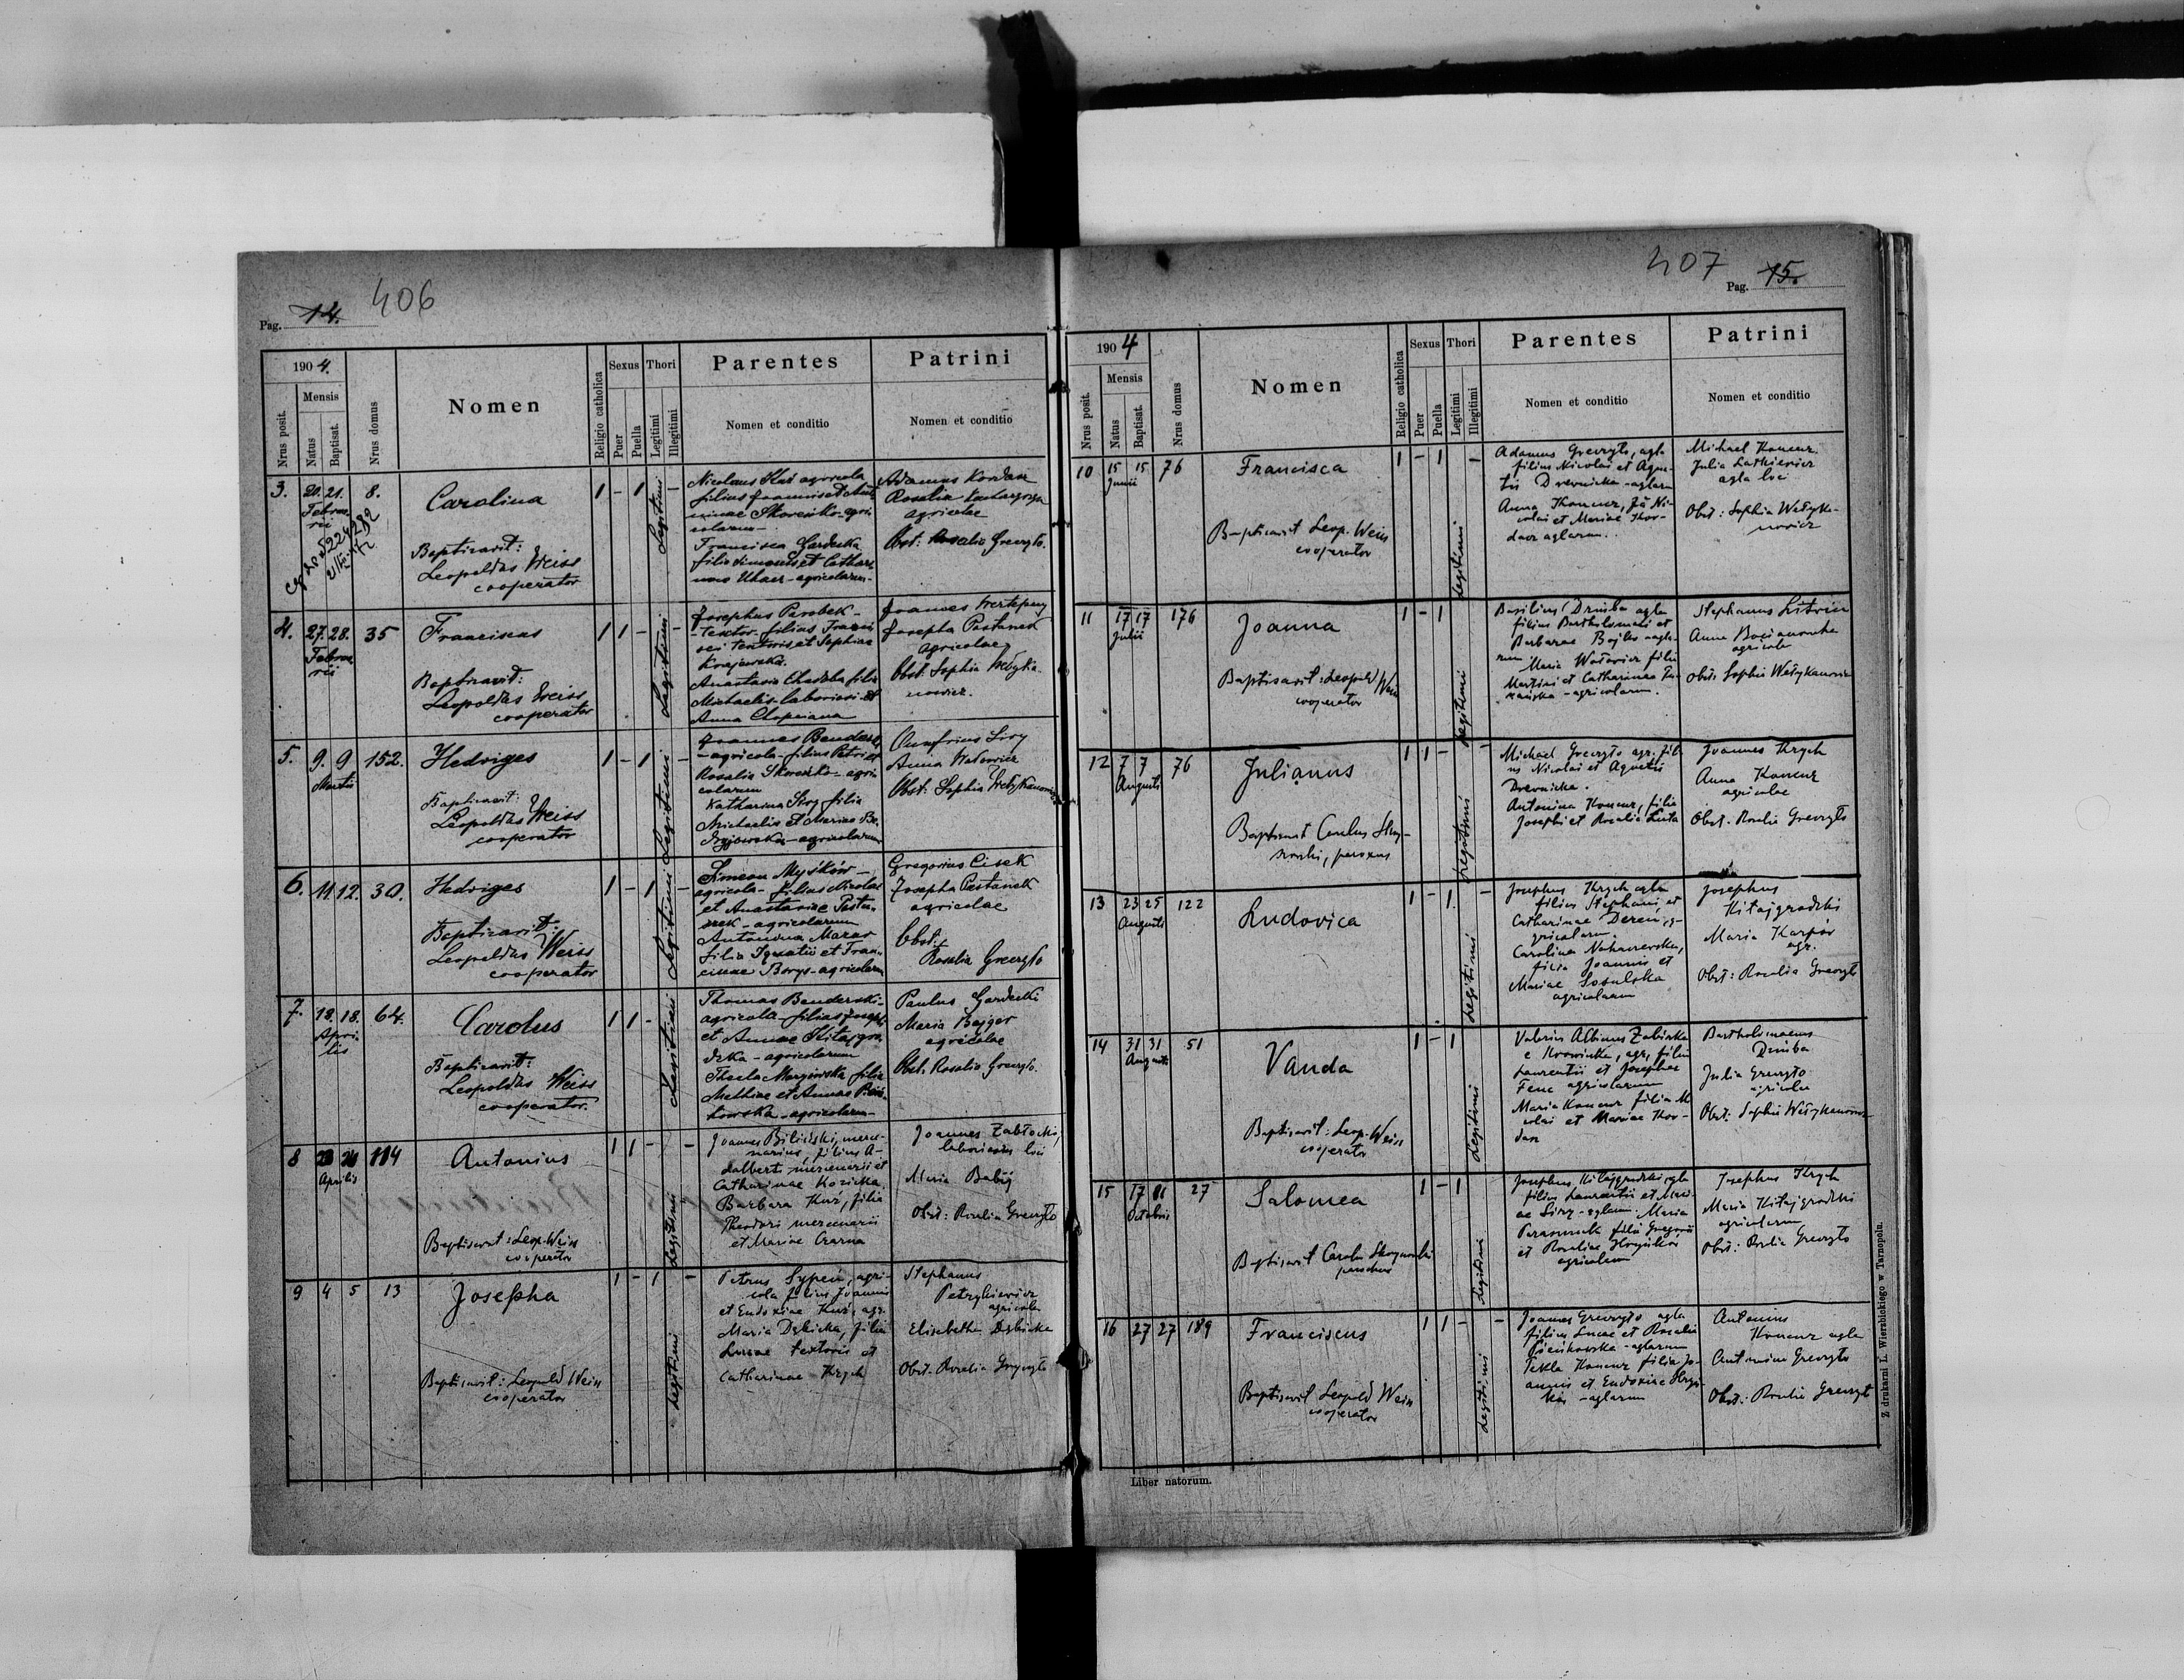 Pag. 14. 406
1904.
Nrus posit.
Mensis
Natus
Baptisat.
Nrus domus
Nomen
Religio catholica
Sexus
Puer
Puella
Thori
Legitimi
Illegitimi
Parentes
Nomen et conditio
Patrini
Nomen et conditio
3. 20. 21. 8. Carolina 1 - 1 -
Februa-
rii
Baptisavit:
Leopoldus Weiss
cooperator
Legitimi
Nicolaus Kuś agricola
filius Joannis et
Skoreńko - agri-
colarum -
Francisca Gardecka
filia Simeonis et Catha-
- agricolarum -
Adamus Kordas
Rosalia
agricolae
Obst: Rosalia Greczyło.
4. 27. 28. 35 Franciscus 1 1 - -
Februa-
rii
Baptisavit:
Leopoldus Weiss
cooperator
Legitimi
Josephus Parobek -
- textor - filius Franci-
sci textoris et Sophiae
Krajewska.
Anastasia filia
Michaelis - laboriosi et
Anna
Joannes
Josepha Pastunek
agricolae
Obst: Sophia Wełyka-
nowicz.
5. 9. 9 152. Hedviges 1 - 1 -
Martii
Baptisavit:
Leopoldus Weiss
cooperator
Legitimi
Joannes
- agricola - filius Petri et
Rosalia Skoreńko - agri-
colarum
Katharina Siry filia
Michaelis et Mariae
- agricolarum
Onufrius Siry
Anna Wałowicz
Obst: Sophia Wełykanowicz
6. 11. 12. 30. Hedviges 1 - 1 -
Baptisavit:
Leopoldus Weiss
cooperator
Legitimi
Simeon Myśków -
agricola - filius Nicolai
et Anastasiae Pastu-
- agricolarum
Antonina Mazur
filia Ignatii et Fran-
ciscae Borys - agricolarum
Gregorius Cisek
Josepha Pastunek
agricolae
Obst:
Rosalia Greczyło
7. 18. 18. 64. Carolus 1 1 -
Apri-
lis
Baptisavit:
Leopoldus Weiss
cooperator.
Legitimi
Thomas Benderski -
agricola - filius Josephi
et Annae Kitajgro-
dzka - agricolarum
Thecla filia
Mathiae et Annae Pień-
kowska - agricolarum -
Paulus Gardecki
Maria Bojger
agricolae
Obst. Rosalia Greczyło.
8 184 Antonius 1 1 - -
Aprilis
Baptisavit: Leop. Weiss
cooperator
Legitimi
Joannes Biliński, merce-
narius, filius A-
dalberti mercenarii et
Catharinae Kozicka.
Barbara Kuś, filia
Theodori mercenarii
et Mariae Czarna
Joannes Zabłocki,
laboriosus loci
Maria Babij
Obst: Rosalia Greczyło
9 4 5 13 Josepha 1 - 1 -
Baptisavit: Leopold Weiss
cooperator
Legitimi
Petrus Sypeń, agri-
cola filius Joannis
et Eudoxiae Kuś, agr.
Maria Dębicka, filia
Lucae textoris et
Catharinae Krych
Stephanus
Petrykiewicz
agricola
Elisabetha Dębicka
Obst. Rosalia Greczyło
407 Pag. 15.
1904
Nrus posit.
Mensis
Natus
Baptisat.
Nrus domus
Nomen
Religio catholica
Sexus
Puer
Puella
Thori
Legitimi
Illegitimi
Parentes
Nomen et conditio
Patrini
Nomen et conditio
10 15 15 76 Francisca 1 - 1 -
Junii
Baptisavit Leop. Weiss
cooperator
Legitimi
Adamus Greczyło, agla
filius Nicolai et Agne-
tis Drewnicka - aglarum
Anna Koncur, fia Ni-
colai et Mariae Kor-
dasz aglarum.
Michael Koncur
Julia Latkiewicz
agla loci
Obst: Sophia Wełyka-
nowicz
11 17 17 176 Joanna 1 - 1
Julii
Baptisavit: Leopold Weiss
cooperator
Legitimi
Basilius Dziuba agla
filius Bartholomaei et
Barbarae Bojko - agla-
rum Maria Wałowicz filia
Martini et Catharinae
- agricolarum.
Stephanus
Anna
agricola
Obst: Sophia Wełykanowicz
12 7 7 76 Julianus 1 1 - -
Augusti
Baptisavit Carolus
, parochus
Legitimi
Michael Greczyło agr. fili-
us Nicolai et Agnetis
Drewnicka.
Antonina Koncur, filia
Josephi et Rosalia
Joannes Krych
Anna Koncur
agricolae
Obst. Rosalia Greczyło
13 23 25 122 Ludovica 1 - 1. -
Augusti
Legitimi
Josephus Krych agla
filius Stephani et
Catharinae Dereń, a-
gricolarum.
Carolina
filia Joannis et
Mariae Sosulska
agricolarum
Josephus
Kitajgrodzki
Maria Karpów
agr.
Obst: Rosalia Greczyło
14 31 31 51 Vanda 1 - 1
Augusti
Baptisavit: Leop. Weiss
cooperator
Legitimi
Valerius Albinus
e , agr., filius
Laurentii et Josephae
Fenc agricolarum
Maria Koncur filia Ni-
colai et Mariae Kor-
dasz
Bartholomaeus
Dziuba
Julia Greczyło
agricolae
Obst: Sophia Wełykanowicz
15 17 27 Salomea 1 - 1
Octobris
Baptisavit Carolus
parochus
Legitimi
Josephus Kitajgrodzki, agla
filius Laurentii et Mari-
ae Siry - aglarum. Maria
filia Gregorii
et Rosaliae
agricolarum
Josephus Krych
Maria Kitajgrodzki
agricolarum
Obst: Rosalia Greczyło
16 27 27 189 Franciscus 1 1 - -
Baptisavit Leopold Weiss
cooperator
Legitimi
Joannes Greczyło agla
filius Lucae et Rosalia
Pieńkowska - aglarum
Tekla Koncur filia Jo-
annis et Eudoxiae
- aglarum
Antonius
Koncur agla
Antonina Greczyło
Obst: Rosalia Greczyło
Liber natorum.
Z drukarni L. Wierzbickiego w Tarnopolu.